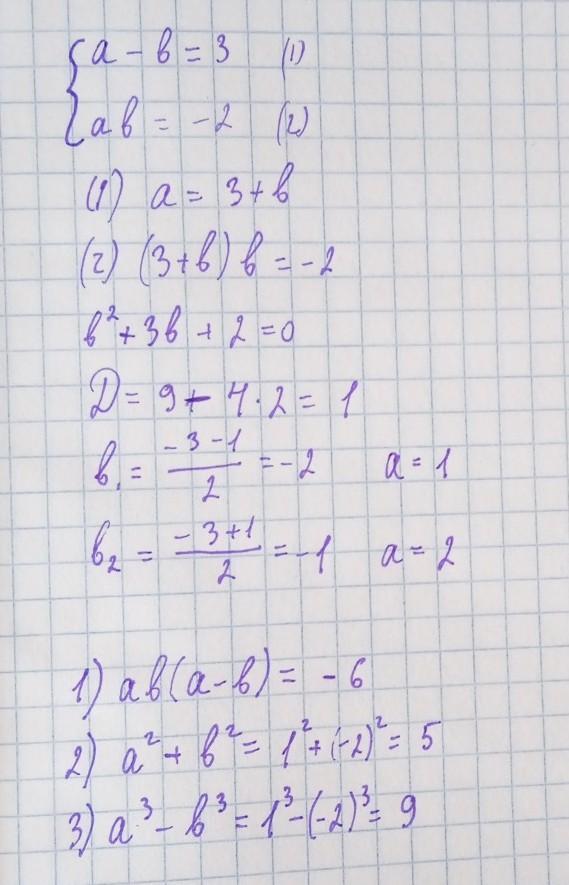 { a - b = 3 (1)
ab = -2 (2)
(1) a = 3 + b
(2) (3+b) b = -2
b² + 3b + 2 = 0
D = 9 - 4·2 = 1
b₁ = (-3-1)/2 = -2 a = 1
b₂ = (-3+1)/2 = -1 a = 2
1) ab(a-b) = -6
2) a² + b² = 1² + (-2)² = 5
3) a³ - b³ = 1³ - (-2)³ = 9